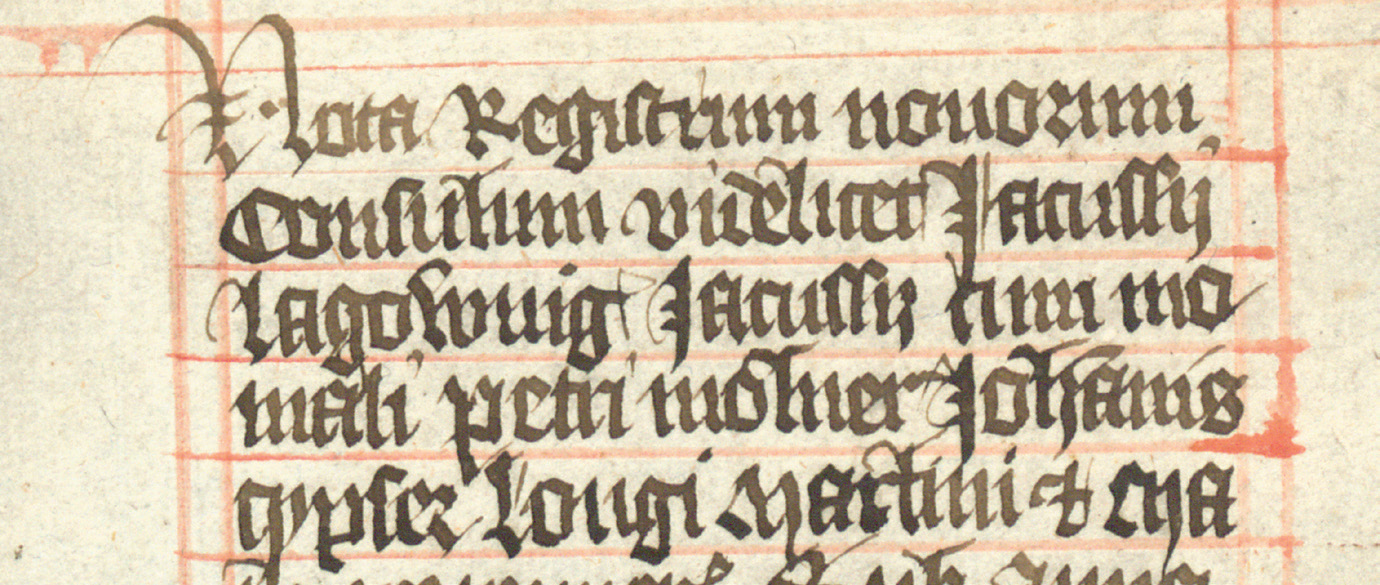 Nota Registrum nouorum
Consulum videlicet Jacussij
Lagownig Jacussij
mali petri molner Johanis
gypser Longi Martini et